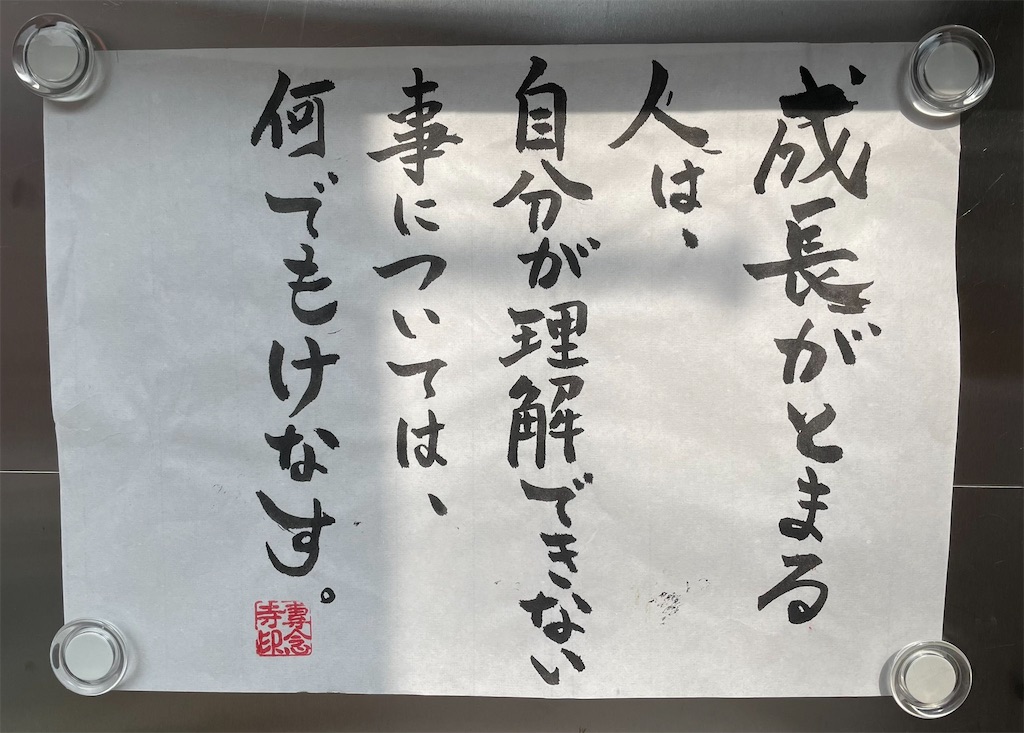 成長がとまる
人は、
自分が理解できない
事については、
何でもけなす。
専念
寺印